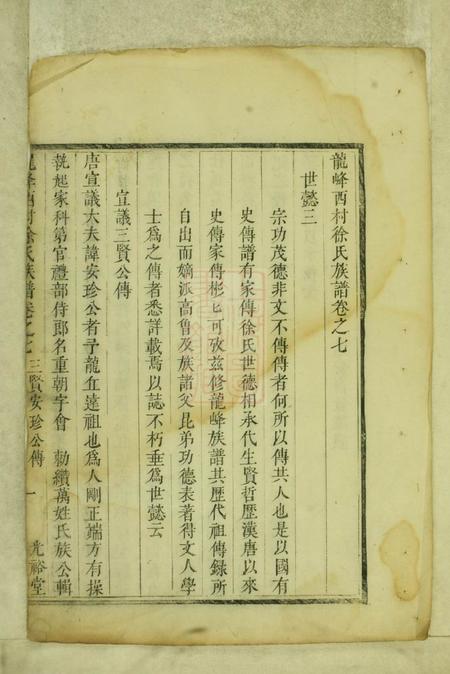 龍峰西村徐氏族譜卷之七
世懿三
宗功茂德非文不傳傳者何所以傳其人也是以國有
史傳譜有家傳徐氏世德相承代生賢哲歷漢唐以來
史傳家傳彬匕可攷茲修龍峰族譜其歷代祖傳錄所
自出而嫡派高魯及族諸父昆弟功德表著得文人學
士為之傳者悉詳載焉以誌不朽垂為世懿云
宜議三賢公傳
唐宣議大夫諱安珍公者予龍丘遠祖也為人剛正端方有操
執起家科第官禮部侍郎名重朝宇會 勅纘萬姓氏族公輯
峰西村徐氏族譜卷之七 三賢安珍公傳 一 光裕堂